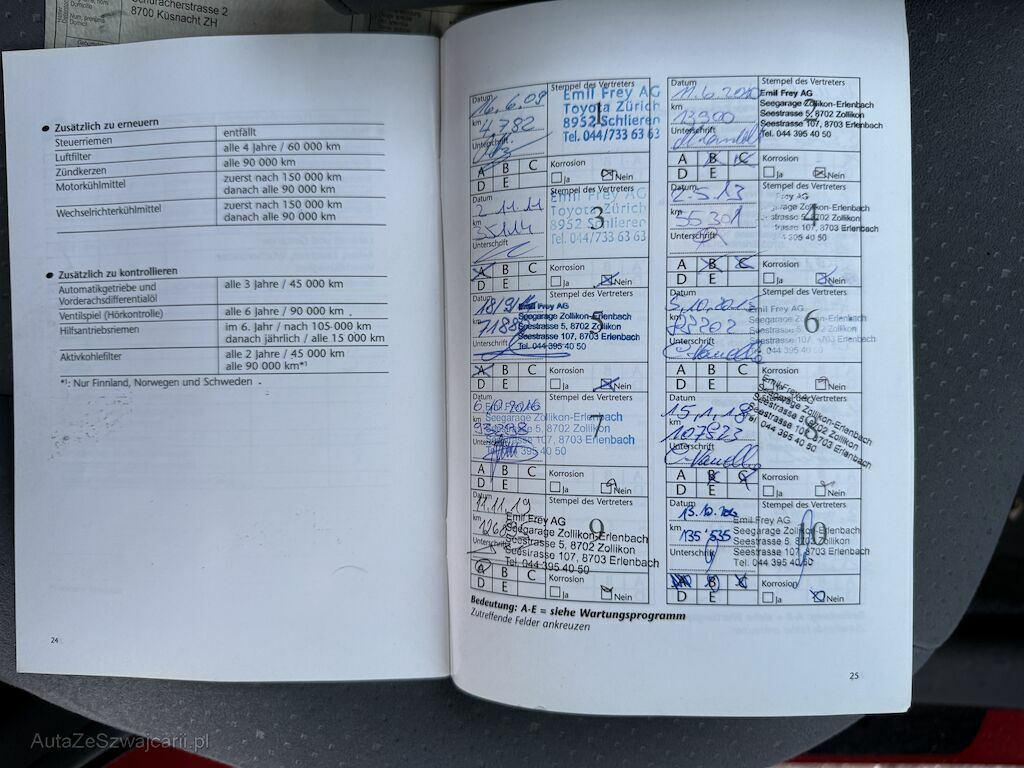 Schuracherstrasse 2
8700 Küsnacht ZH
Zusätzlich zu erneuern
Steuerriemen entfällt
Luftfilter alle 4 Jahre / 60 000 km
Zündkerzen alle 90 000 km
Motorkühlmittel zuerst nach 150 000 km
danach alle 90 000 km
Wechselrichterkühlmittel zuerst nach 150 000 km
danach alle 90 000 km
Zusätzlich zu kontrollieren
Automatikgetriebe und alle 3 Jahre / 45 000 km
Vorderachsdifferentialöl
Ventilspiel (Hörkontrolle) alle 6 Jahre / 90 000 km
Hilfsantriebsriemen im 6. Jahr / nach 105 000 km
danach jährlich / alle 15 000 km
Aktivkohlefilter alle 2 Jahre / 45 000 km
alle 90 000 km*¹
*¹: Nur Finnland, Norwegen und Schweden
24
Datum 16.6.09
Stempel des Vertreters
km 4782
Unterschrift
1
Emil Frey AG
Toyota Zürich
8952 Schlieren
Tel. 044/733 63 63
A B C
D E
Korrosion
Ja Nein
Datum 11.6.2010
Stempel des Vertreters
km 13900
Unterschrift
Emil Frey AG
Seegarage Zollikon-Erlenbach
Seestrasse 5, 8702 Zollikon
Seestrasse 107, 8703 Erlenbach
Tel. 044 395 40 50
A B C
D E
Korrosion
Ja Nein
Datum 2.11.11
Stempel des Vertreters
km 35114
Unterschrift
3
Emil Frey AG
Toyota Zürich
8952 Schlieren
Tel. 044/733 63 63
A B C
D E
Korrosion
Ja Nein
Datum 2.5.13
Stempel des Vertreters
km 55301
Unterschrift
4
Frey AG
Zollikon-Erlenbach
Seestrasse 5, 8702 Zollikon
107, 8703 Erlenbach
395 40 50
A B C
D E
Korrosion
Ja Nein
Datum
Stempel des Vertreters
km
Unterschrift
5
Emil Frey AG
Seegarage Zollikon-Erlenbach
Seestrasse 5, 8702 Zollikon
Seestrasse 107, 8703 Erlenbach
Tel. 044 395 40 50
A B C
D E
Korrosion
Ja Nein
Datum 5.10.2015
Stempel des Vertreters
km
Unterschrift
6
Emil Frey AG
Seegarage Zollikon-Erlenbach
Seestrasse 5, 8702 Zollikon
Seestrasse 107, 8703 Erlenbach
395 40 50
A B C
D E
Korrosion
Ja Nein
Datum 6.10.2016
Stempel des Vertreters
km
Unterschrift
7
Seegarage Zollikon-Erlenbach
Seestrasse 5, 8702 Zollikon
Seestrasse 107, 8703 Erlenbach
Tel. 044 395 40 50
A B C
D E
Korrosion
Ja Nein
Datum 15.1.18
Stempel des Vertreters
km 107823
Unterschrift
Emil Frey AG
Seegarage Zollikon-Erlenbach
Seestrasse 5, 8702 Zollikon
Seestrasse 107, 8703 Erlenbach
Tel. 044 395 40 50
A B C
D E
Korrosion
Ja Nein
Datum 11.11.19
Stempel des Vertreters
km
Unterschrift
9
Emil Frey AG
Seegarage Zollikon-Erlenbach
Seestrasse 5, 8702 Zollikon
Seestrasse 107, 8703 Erlenbach
Tel. 044 395 40 50
A B C
D E
Korrosion
Ja Nein
Datum
Stempel des Vertreters
km 135'535
Unterschrift
10
Emil Frey AG
Seegarage Zollikon-Erlenbach
Seestrasse 5, 8702 Zollikon
Seestrasse 107, 8703 Erlenbach
Tel. 044 395 40 50
A B C
D E
Korrosion
Ja Nein
Bedeutung: A-E = siehe Wartungsprogramm
Zutreffende Felder ankreuzen
25
AutaZeSzwajcarii.pl